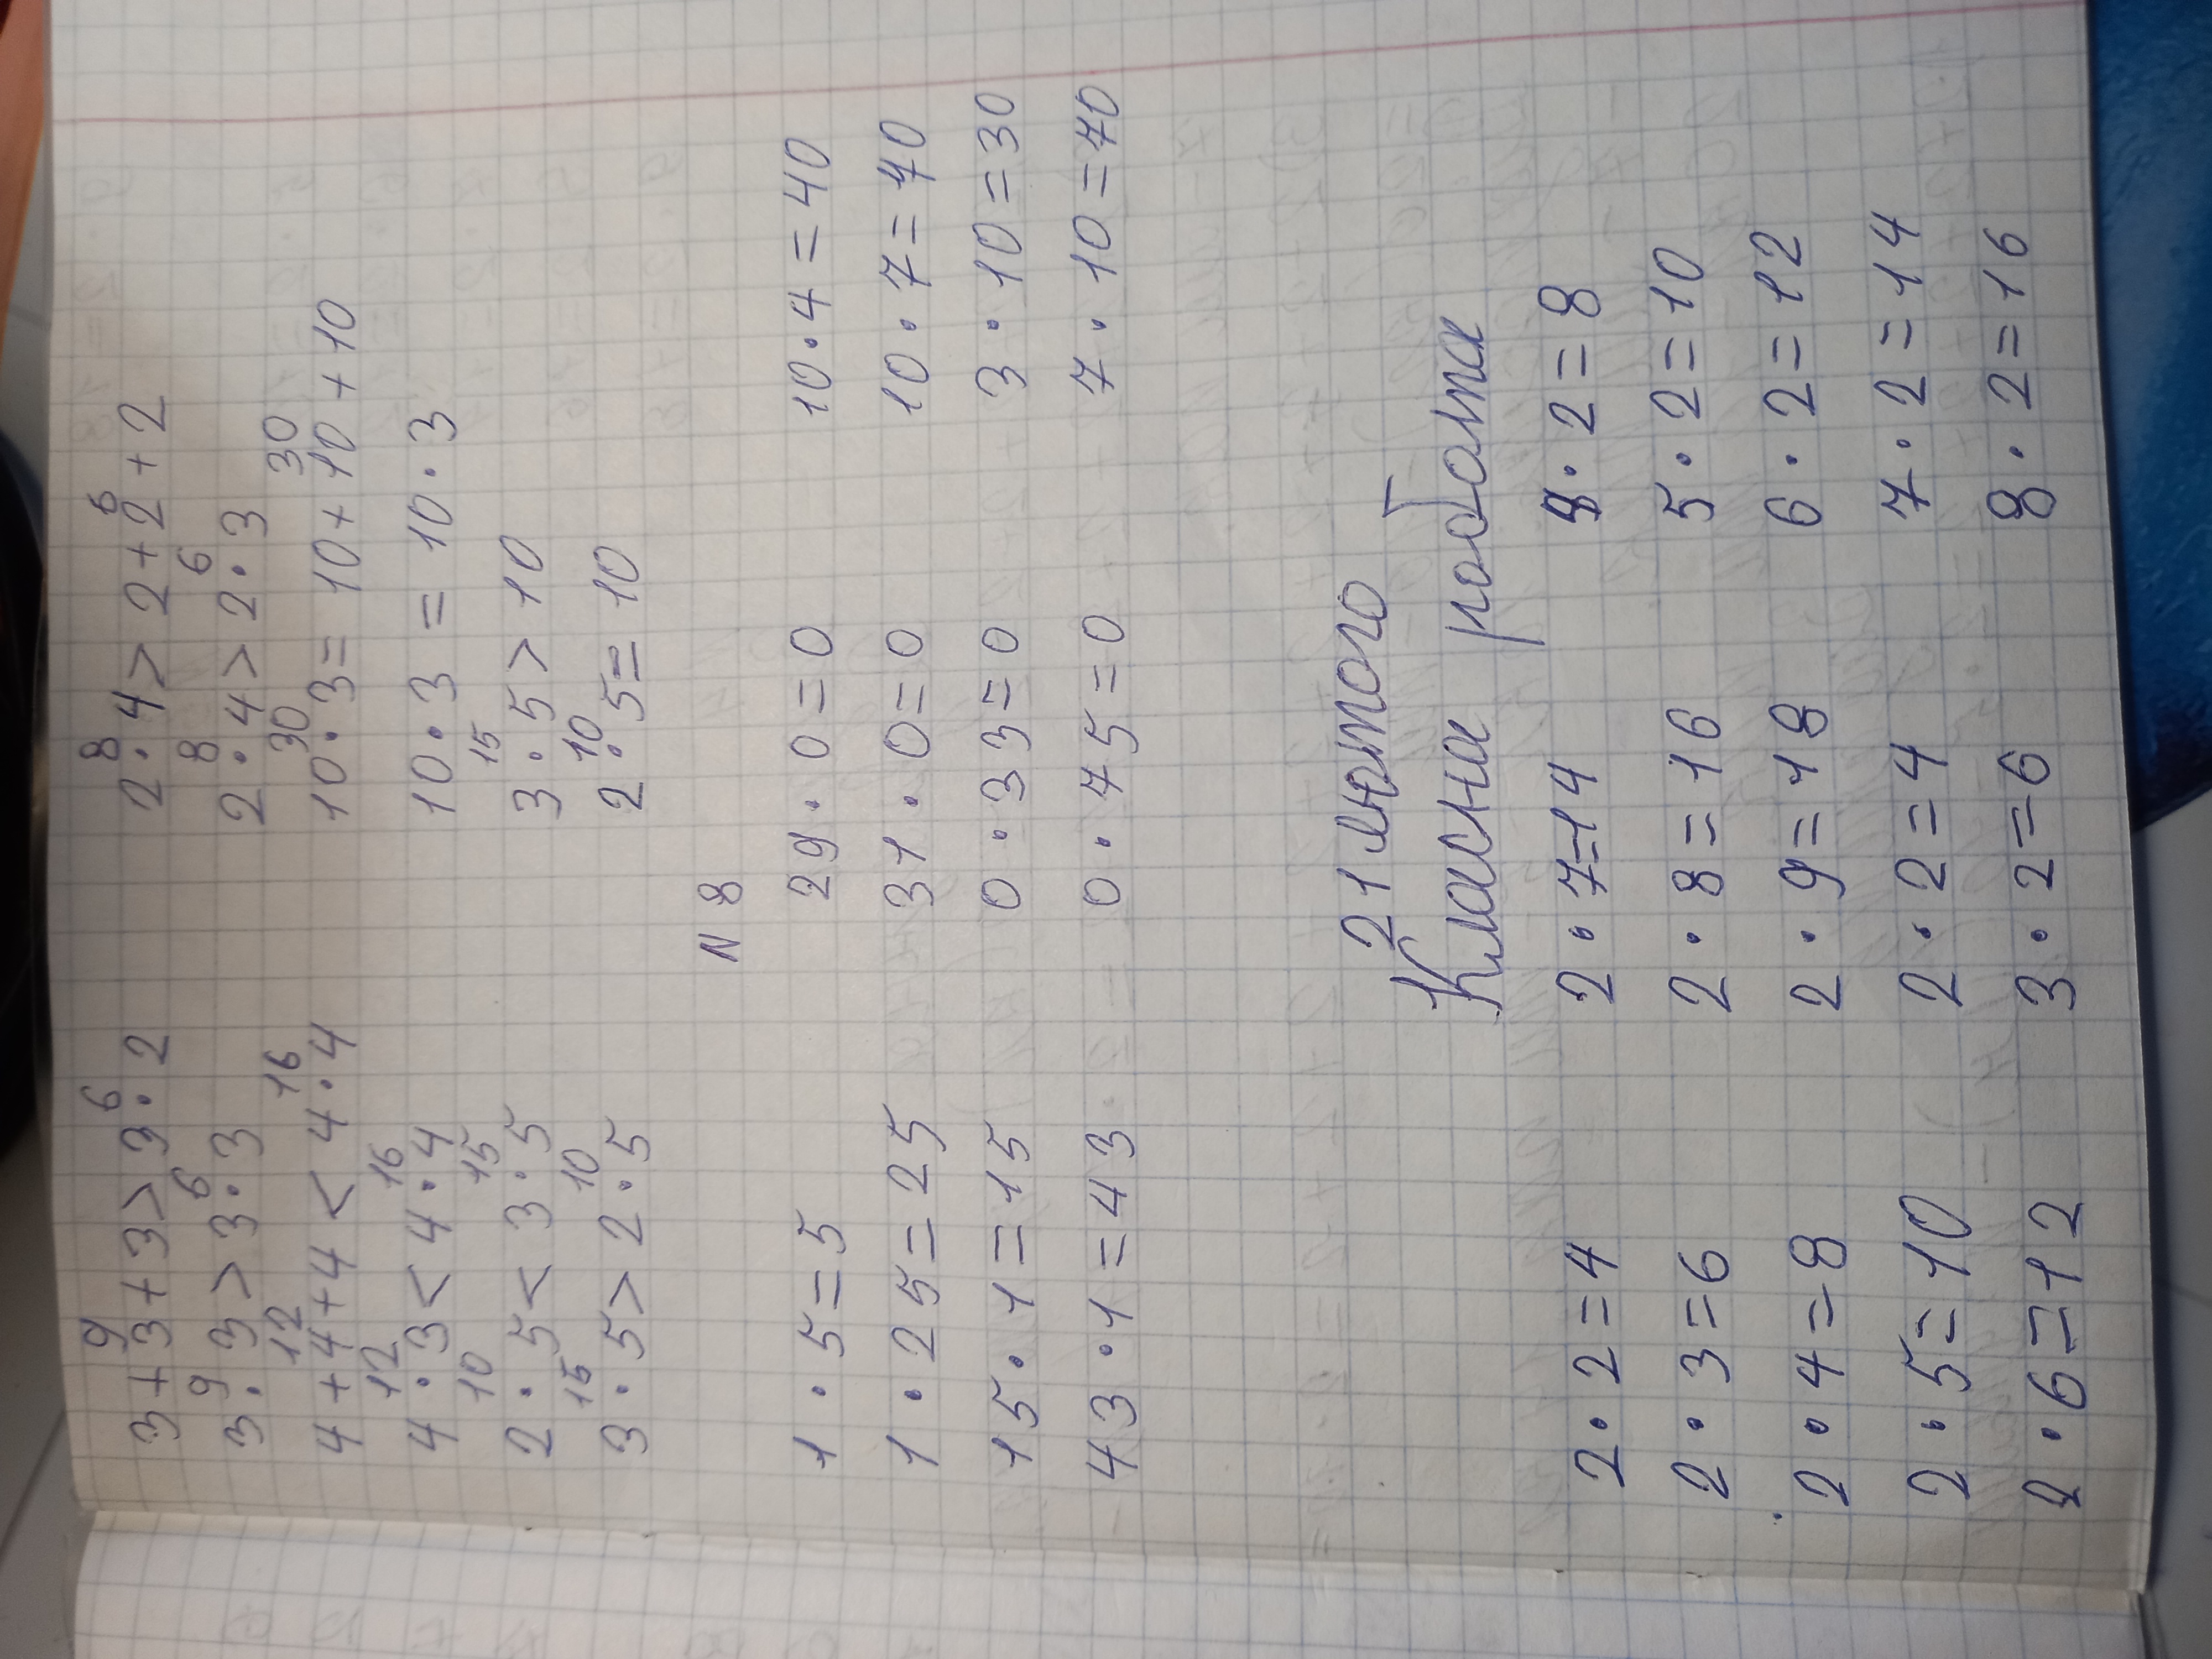 9 6 8 6
3+3+3>3·2 2·4>2+2+2
9 6 8 6
3·3>3·3 2·4>2·3
12 16 30 30
4+4+4<4·4 10·3=10+10+10
12 16
4·3<4·4 10·3=10·3
10 15 15
2·5<3·5 3·5>10
15 10 10
3·5>2·5 2·5=10
N 8
1·5=5 29·0=0 10·4=40
1·25=25 31·0=0 10·7=70
15·1=15 0·33=0 3·10=30
43·1=43 0·75=0 7·10=70
21 лютого
Класна робота
2·2=4 2·7=14 4·2=8
2·3=6 2·8=16 5·2=10
2·4=8 2·9=18 6·2=12
2·5=10 2·2=4 7·2=14
2·6=12 3·2=6 8·2=16